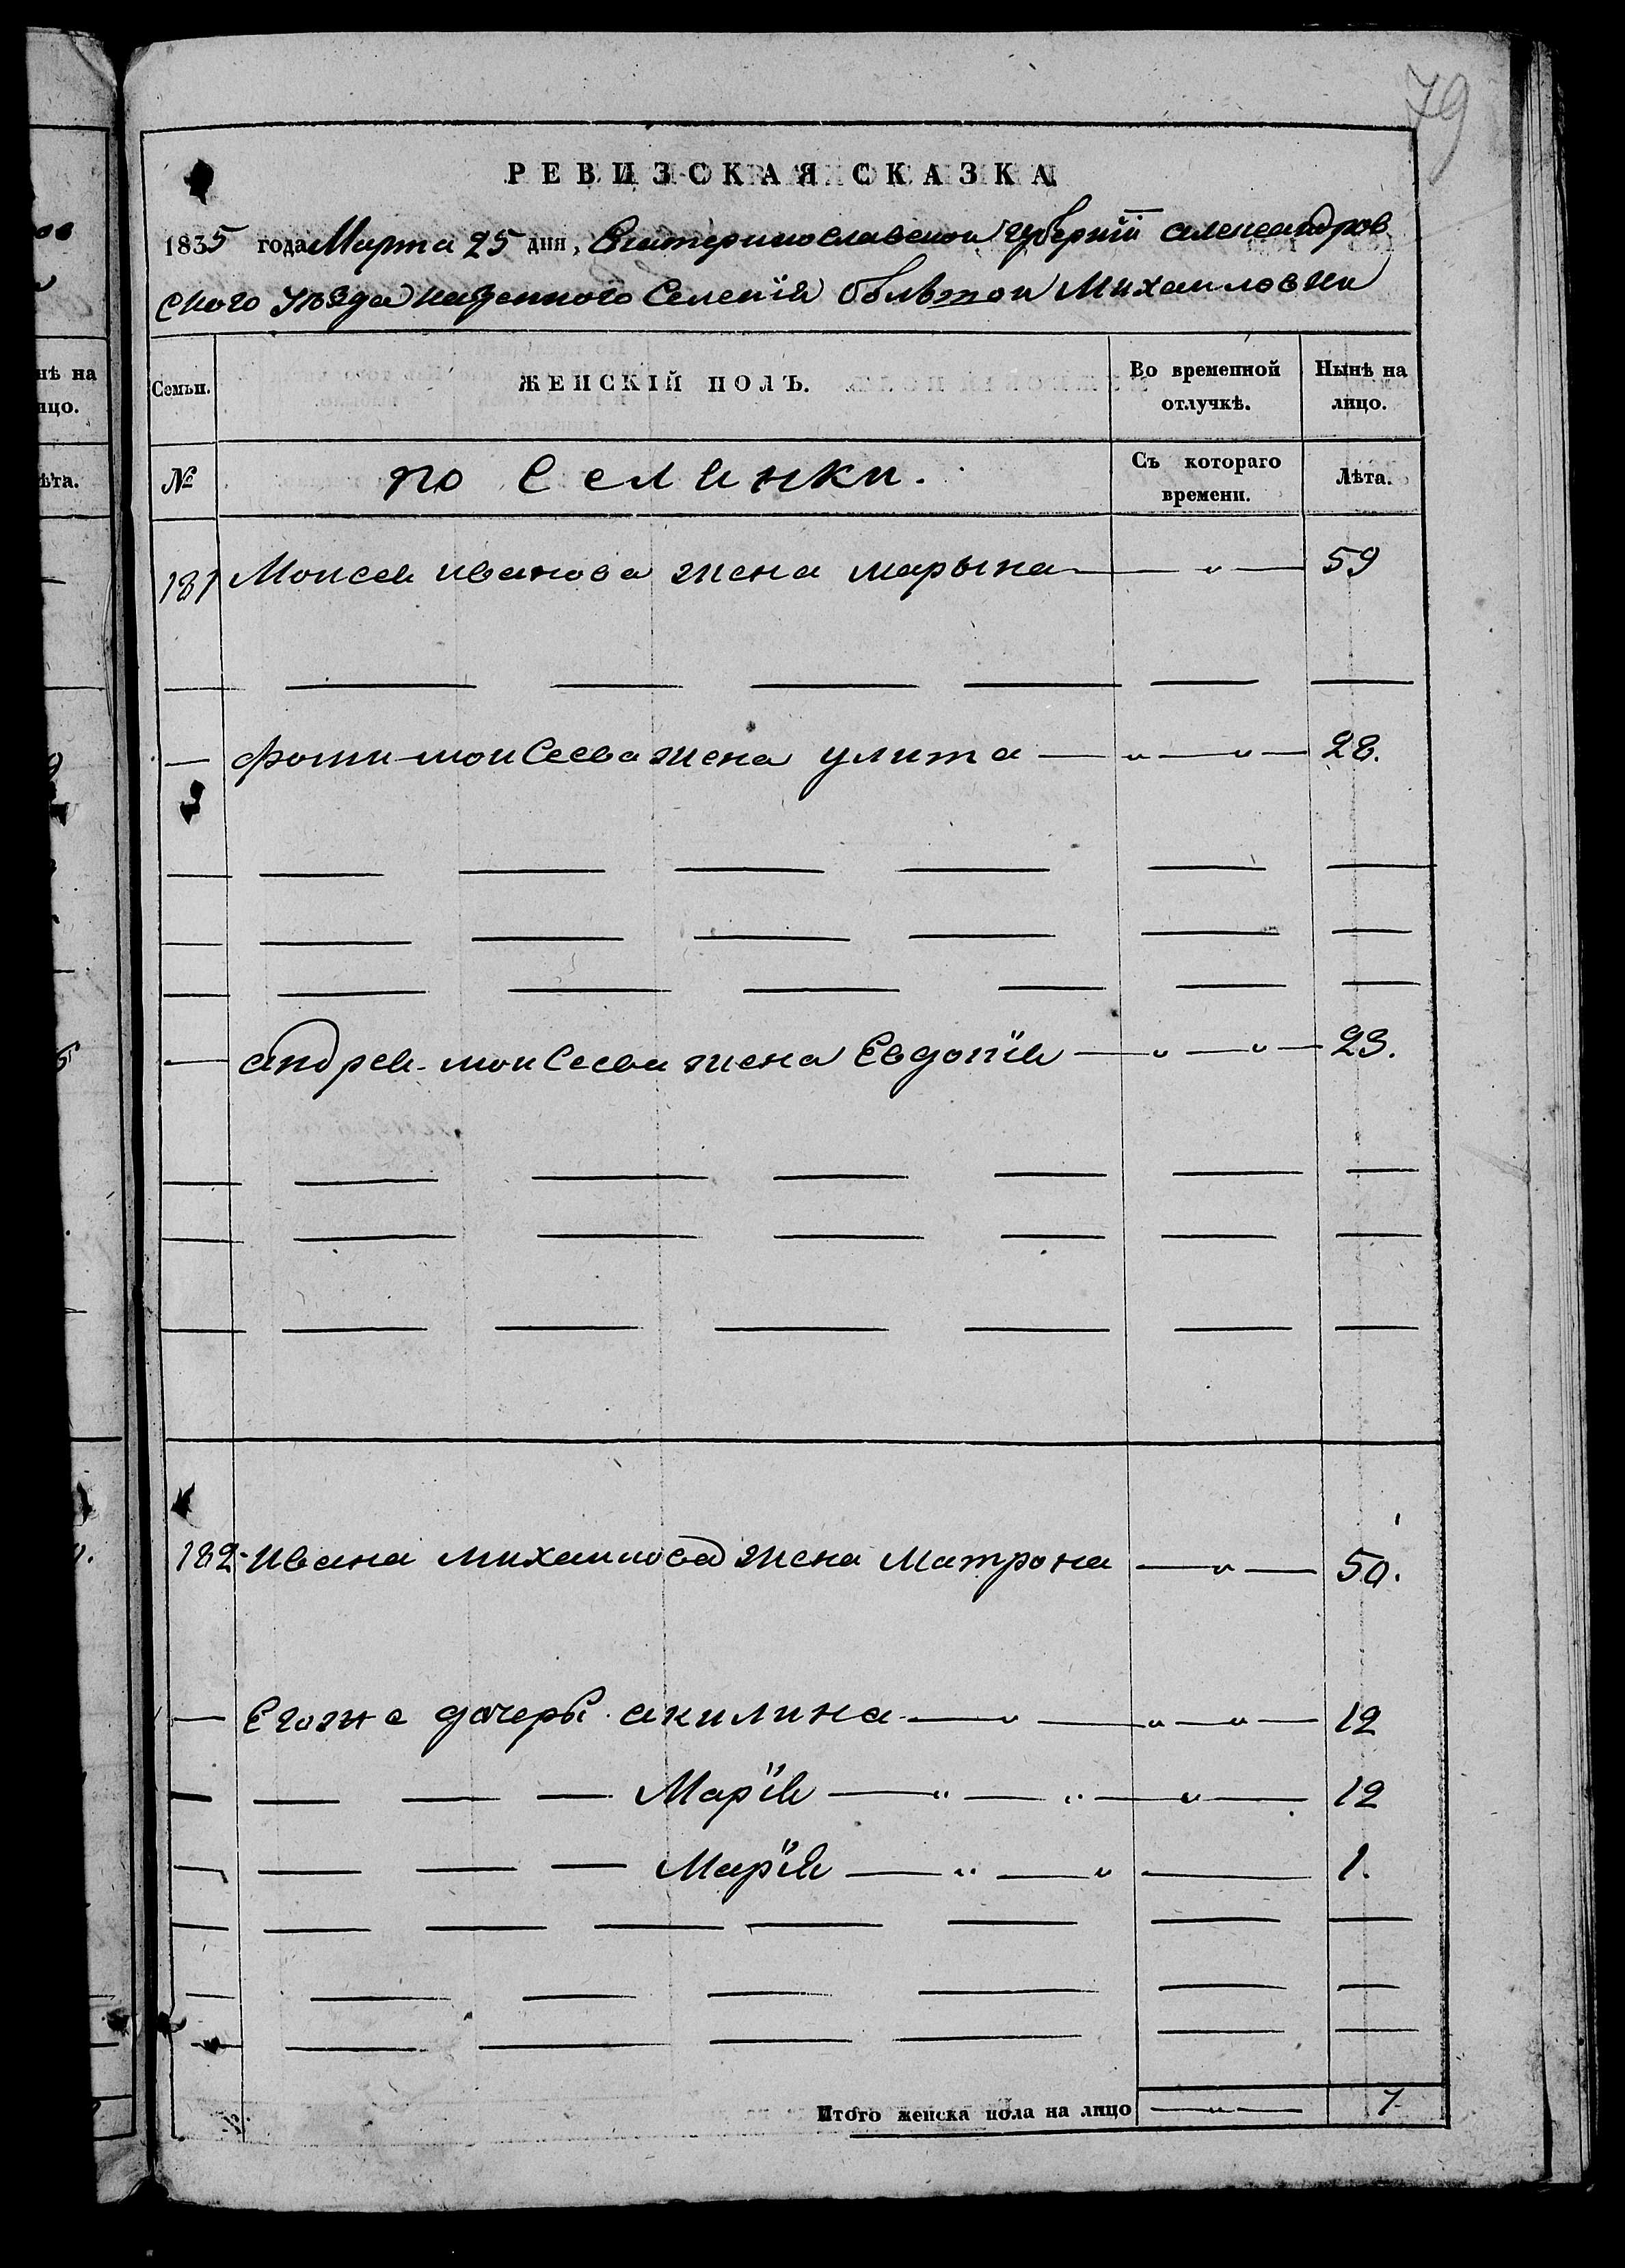 79
РЕВИЗСКАЯ СКАЗКА
1835 года Марта 25 дня, Екатеринославской губерніи александров
ского уѣзда казенного Селенія большой Михаиловки
Семьи. ЖЕНСКІЙ ПОЛЪ. Во временной отлучкѣ. Нынѣ на лицо.
№ по Селинки. Съ котораго времени. Лѣта.
181 Моисея иванова жена марьина 59
фоми моисеева жена улита 28.
андрея моисеева жена Евдокія 23.
182 ивана михаилова жена Матрона 50.
Егоже дочеры акилина 12
Марія 12
Марія 1.
Итого женска пола на лицо 7